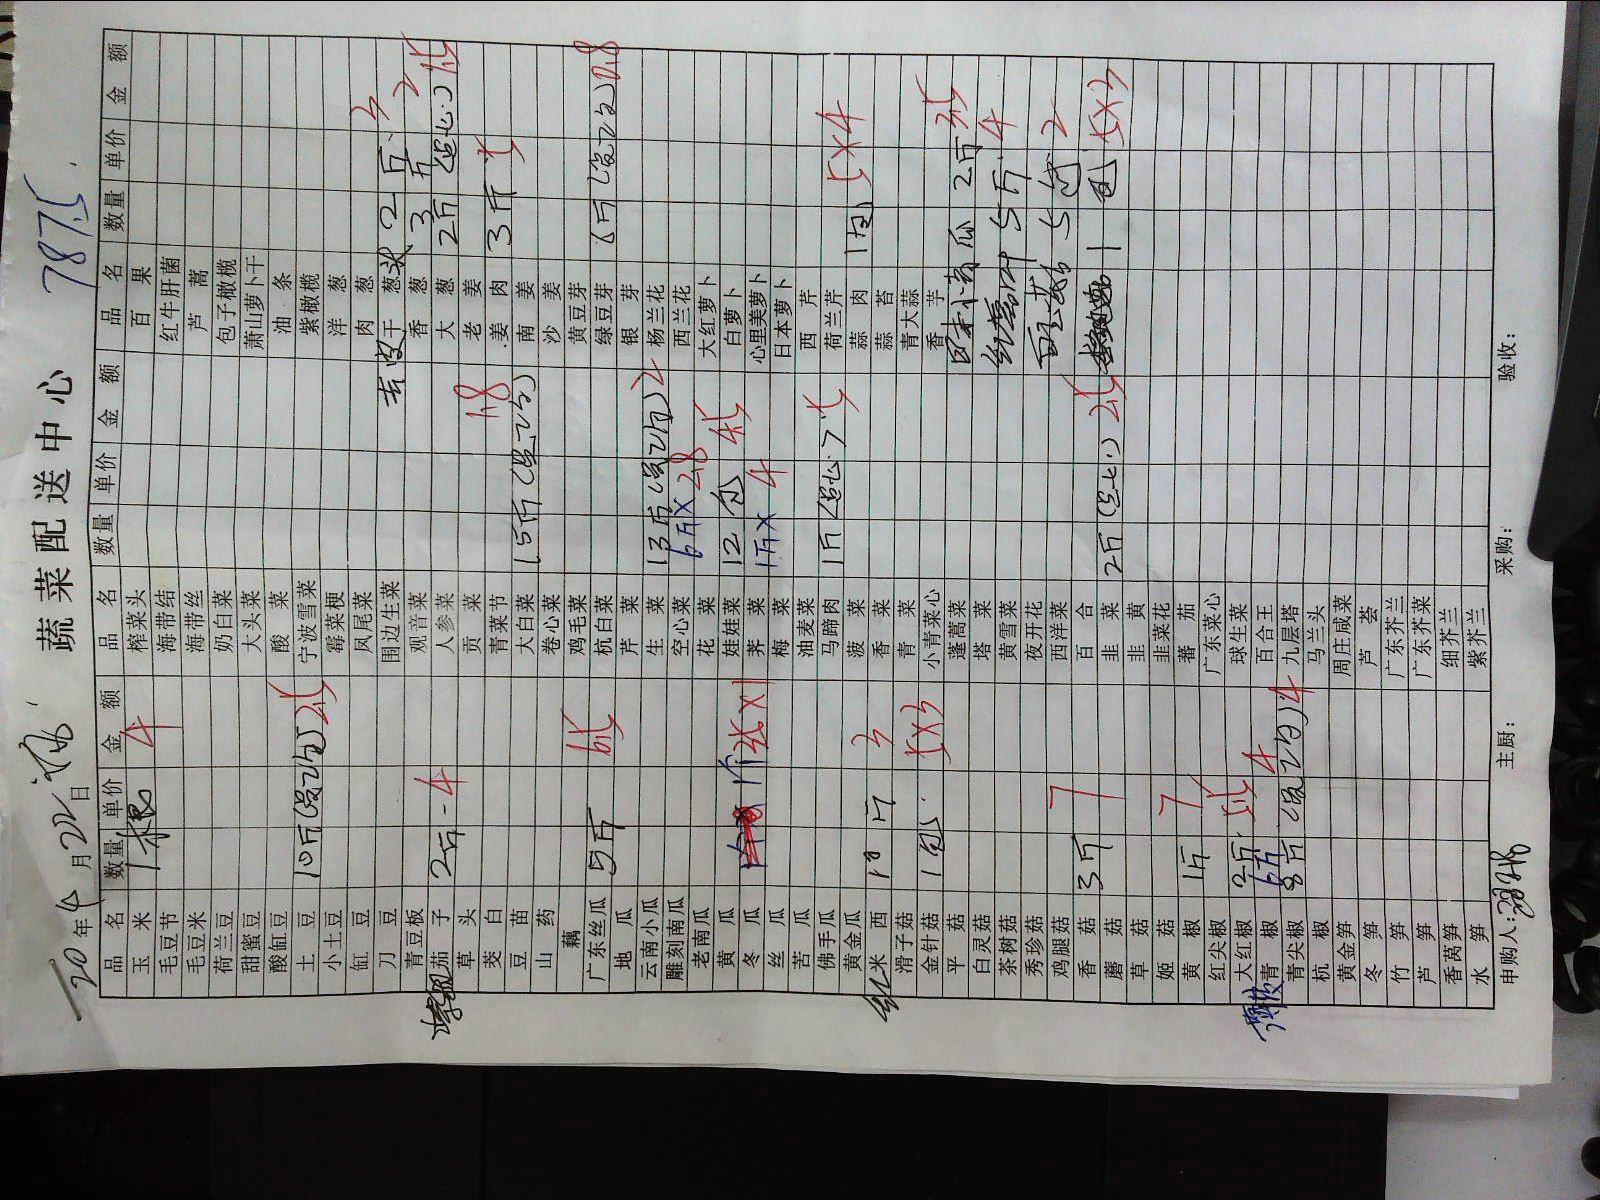 蔬菜配送中心
787.5
20 年 4 月 22 日
品名 数量 单价 金额 品名 数量 单价 金额 品名 数量 单价 金额
玉米 1根 4 榨菜头 百果
毛豆节 海带结 红牛肝菌
毛豆米 海带丝 芦蒿
荷兰豆 奶白菜 包子橄榄
甜蜜豆 大头菜 萧山萝卜干
酸缸豆 酸菜 油条
土豆 10斤 2.5 宁波雪菜 紫橄榄
小土豆 霉菜梗 洋葱
缸豆 凤尾菜 肉葱
刀豆 围边生菜 去皮干葱头 2斤 3
青豆板 观音菜 香葱 3斤 2
茄子 2斤 4 人参菜 大葱 2斤
草头 贡菜 1.8 老姜
茭白 青菜节 姜肉 3斤
豆苗 大白菜 15斤 南姜
山药 卷心菜 沙姜
藕 鸡毛菜 黄豆芽
广东丝瓜 5斤 6.5 杭白菜 绿豆芽 0.8
地瓜 芹菜 银芽
云南小瓜 生菜 13斤 2 杨兰花
雕刻南瓜 空心菜 6斤X 2.8 西兰花
老南瓜 花菜 大红萝卜
黄瓜 娃娃菜 12包 4.5 白萝卜
冬瓜 荠菜 1斤X 4 心里美萝卜
丝瓜 梅菜 日本萝卜
苦瓜 油麦菜 西芹
佛手瓜 马蹄肉 1斤 荷兰芹
黄金瓜 菠菜 蒜肉 1包 5X4
红米西 1斤 3 香菜 蒜苔
滑子菇 青菜 青大蒜
金针菇 1包 5X3 小青菜心 香芋
平菇 蓬蒿菜 日本小青瓜 2斤 3.5
白灵菇 塔菜 5斤 4
茶树菇 黄雪菜
秀珍菇 夜开花 5包 2
鸡腿菇 西洋菜
香菇 3斤 7 百合 1包 5X3
蘑菇 韭菜 2斤 2.5
草菇 韭黄
姬菇 韭菜花
黄椒 1斤 7 蕃茄
红尖椒 广东菜心
大红椒 2斤 5.5 球生菜
薄皮青椒 6斤 4 百合王
青尖椒 8斤 4 九层塔
杭椒 马兰头
黄金笋 周庄咸菜
冬笋 芦荟
竹笋 广东芥兰
芦笋 广东芥菜
香莴笋 细芥兰
水笋 紫芥兰
申购人: 主厨: 采购: 验收: